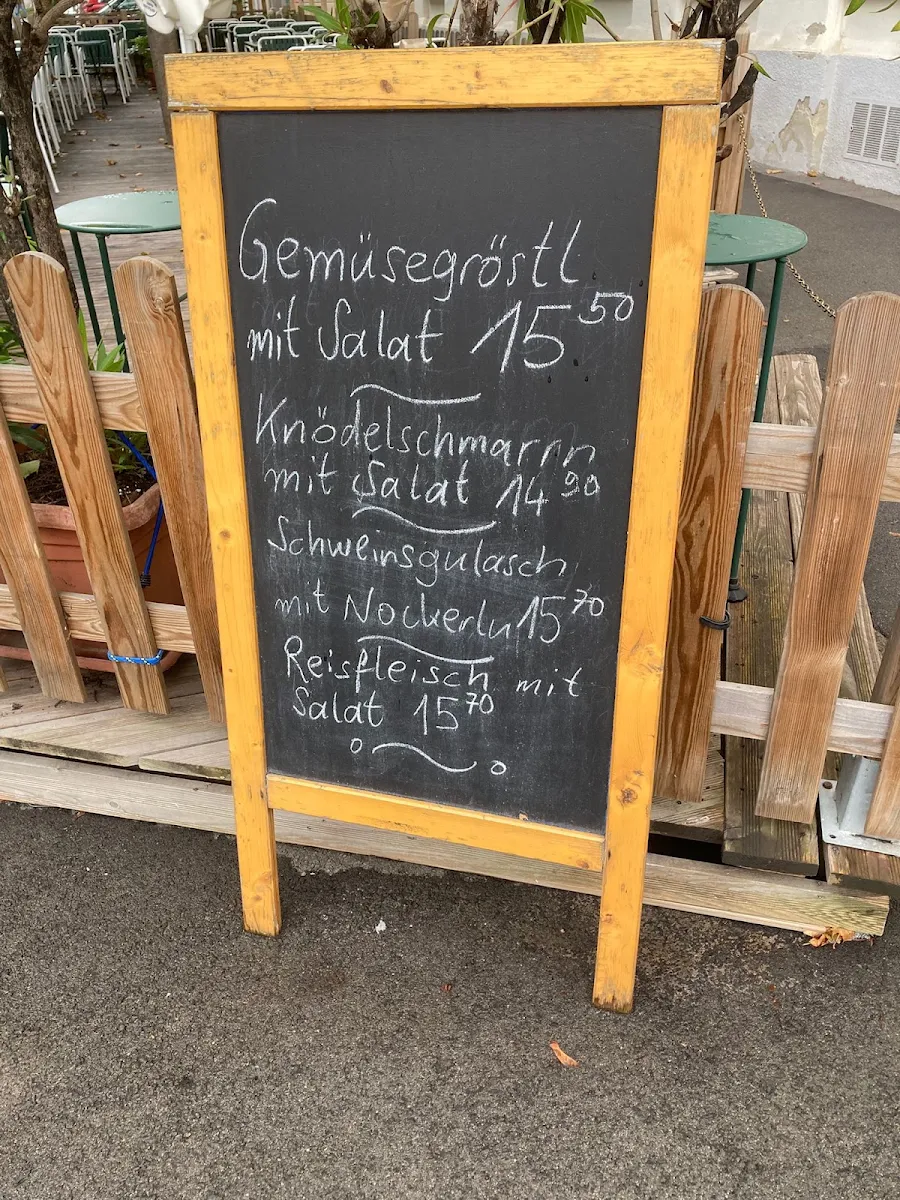 Gemüsegröstl
mit Salat 15 50
Knödelschmarrn
mit Salat 14 90
Schweinsgulasch
mit Nockerln 15 70
Reisfleisch mit
Salat 15 70